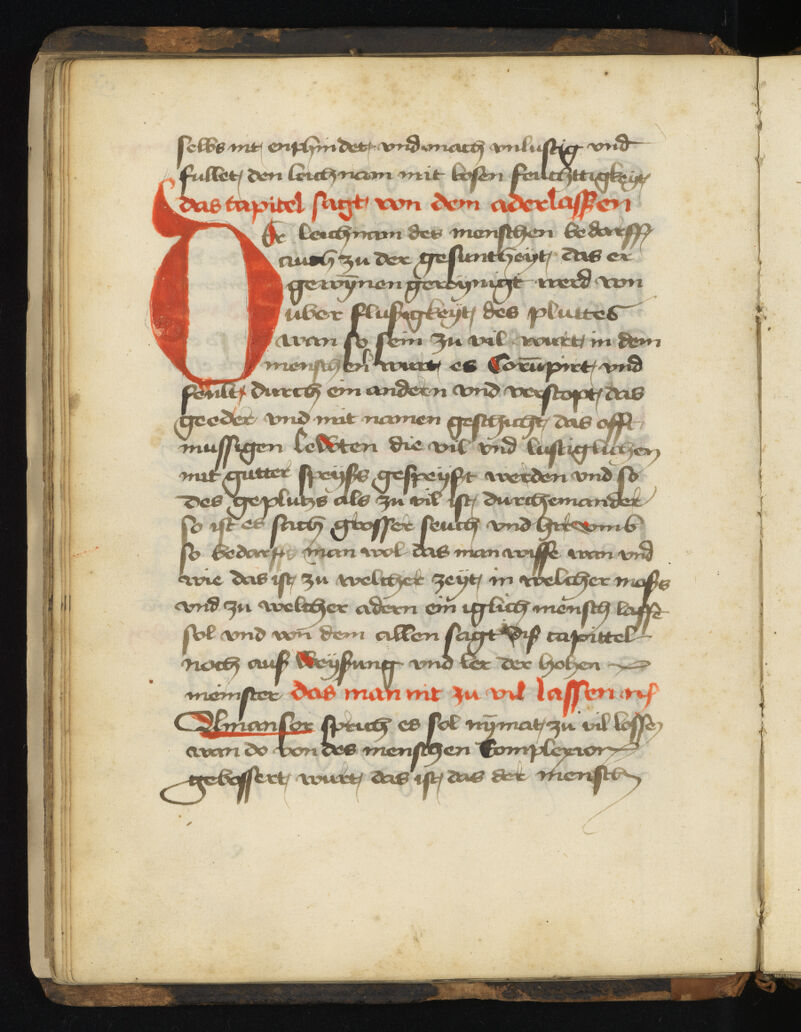 selbs nit enphindet vnd mach vnlustig vnd
fullet den leichnam mit bosen feuchttigkeyt
das capitel sagt von dem aderlassen
Der leichnam des menschen bedarff
auch zu der gesuntheyt das er
gewynen gereynigt werd von
vber flussigkeyt des pluttes
wan so sein zu vil wurt in dem
menschen wurt es Corupirt vnd
feult durch ein andern vnd verstopt das
geeder vnd mit namen geschicht das offt
mussigen lewten die vil vnd lustiglichen
mit gutter speyss gespeyst werden vnd so
des geplutzs als zu vil ist durcheinander
so ist es sach grosser seuch vnd hirvmb
so bedarff man wol das man wisse wan vnd
wie das ist zu welcher zeyt in welcher mass
vnd zu welcher adern ein iglich mensch lassen
sol vnd von dem allen sagt diss capittel
noch auss weyssung vnd ler der hohen
meinster das man nit zu vil lassen
Almansor sprich es sol nymat zu vil lossen
wan do von des menschen Complexion
gebossert wurt das ist das der mensch